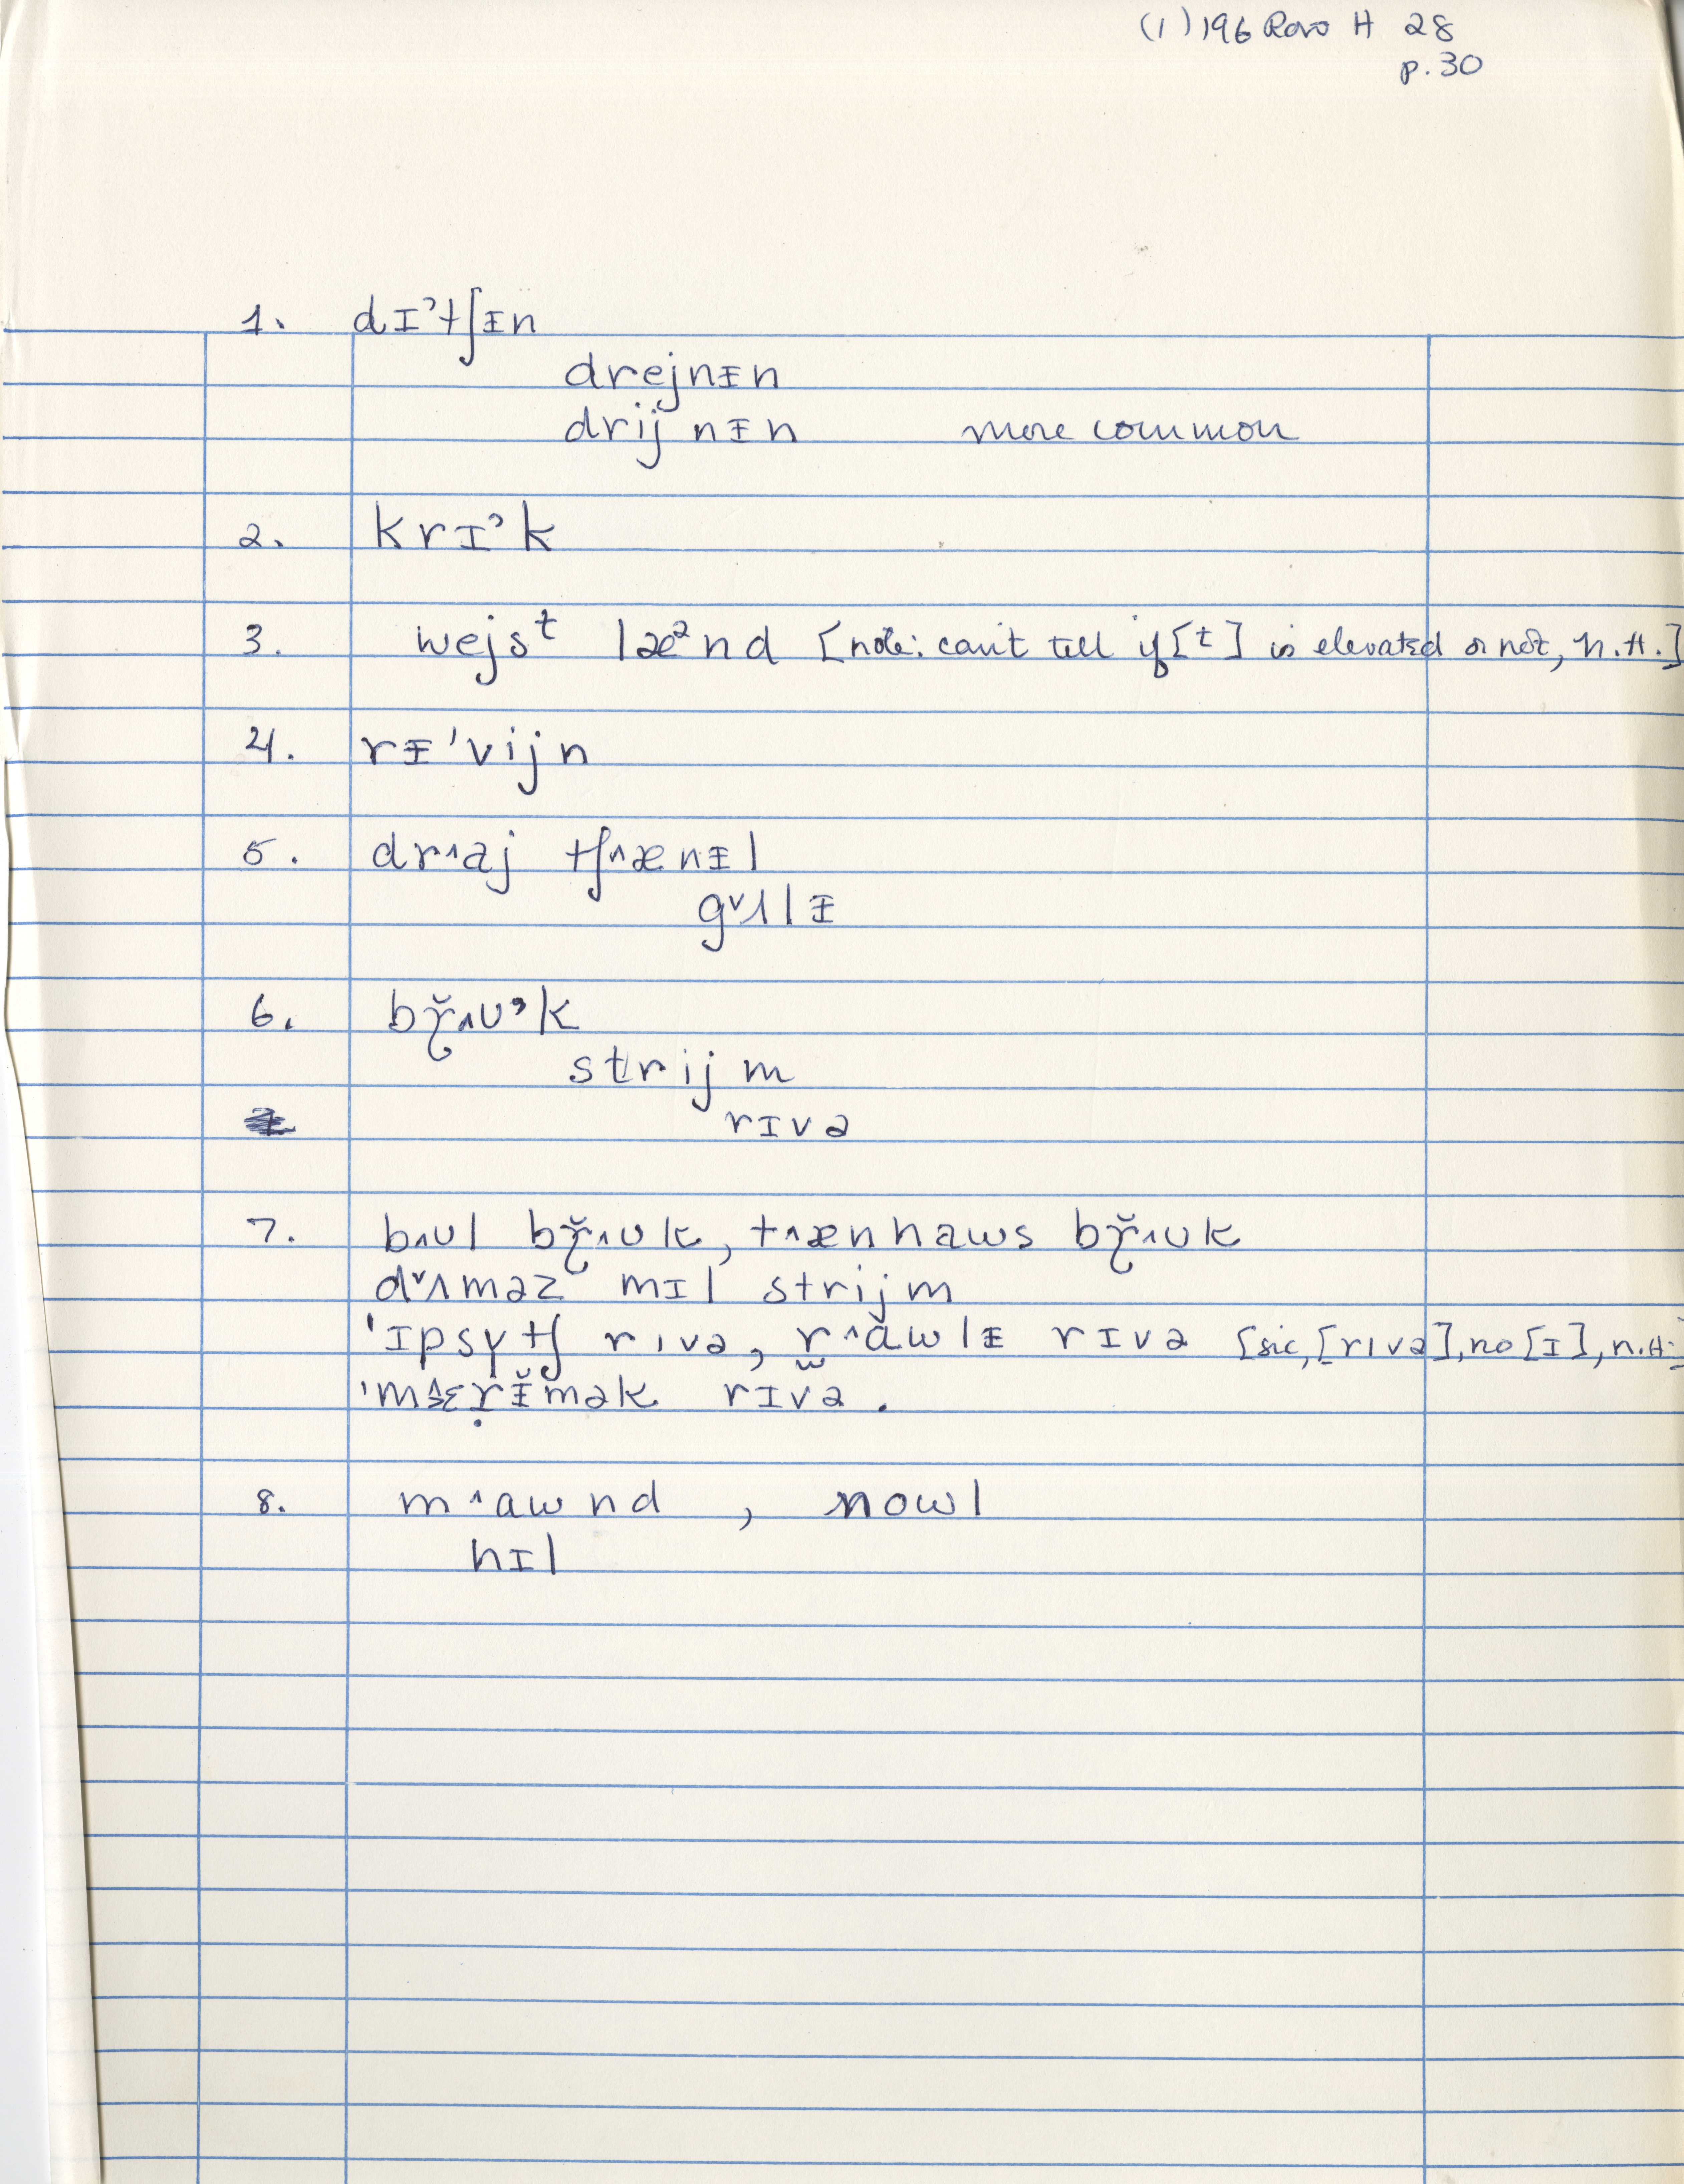 (1) 196 Rovo H 28
p. 30
1. dɪ˒tʃᵻn
drejnᵻn
drijnᵻn more common
2. krɪ˒k
3. wejsᵗ læ²nd [note: can't tell if [t] is elevated or not, n.H.]
4. rᵻ'vijn
5. dr˄aj tʃ˄ænᵻl
g˅ʌlᵻ
6. bɽ̆˄ʊ˒k
strijm
rɪvə
7. b˄ʊl bɽ̆˄ʊk, t˄ænhaws bɽ̆˄ʊk
d˅ʌməz mɪl strijm
'ɪpsɣtʃ rıvə, r̫˄ăwlᵻ rɪvə [sic, [rıvə], no [ɪ], n.H.]
rɪvə.
8. m˄awnd, nowl
hɪl